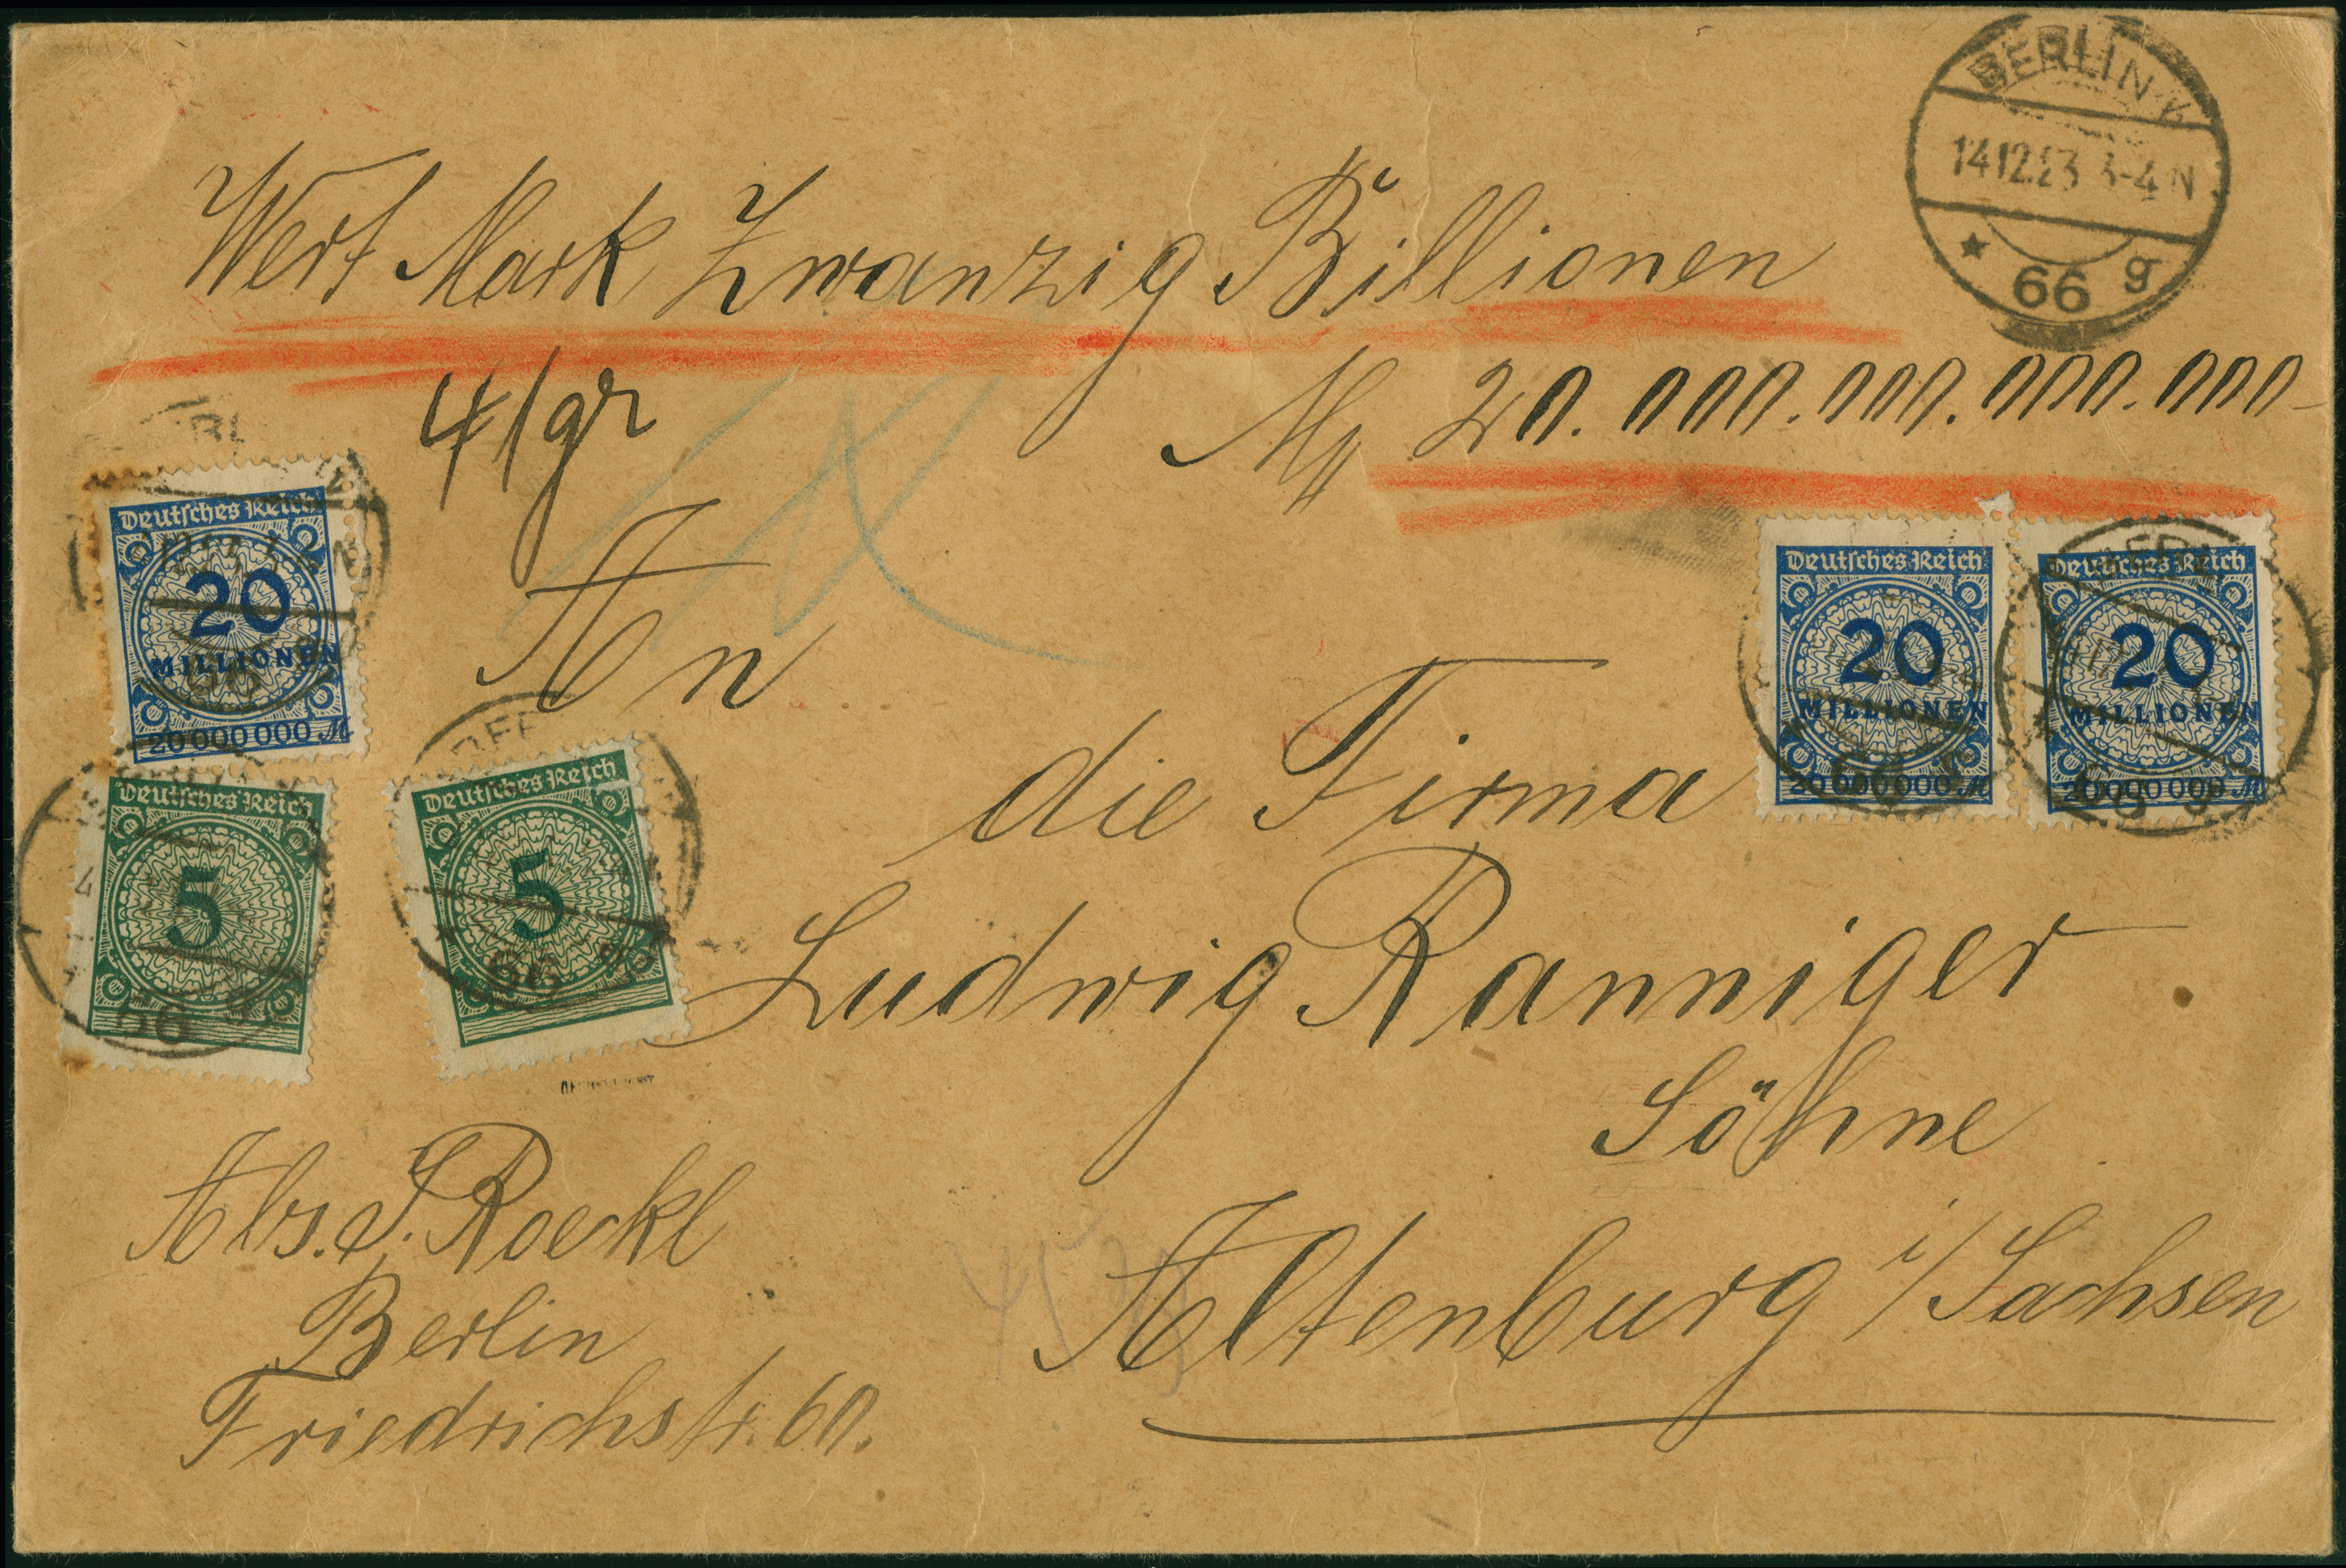 BERLIN W
14.12.23 3-4 N
* 66 g
Wert Mark Zwanzig Billionen
41gr
M 20.000.000.000.000-
Deutsches Reich
20
MILLIONEN
20000000 M
Deutsches Reich
20
MILLIONEN
20000000 M
Deutsches Reich
20
MILLIONEN
20000000 M
An
die Firma
Ludwig Ranniger
Söhne
Altenburg i/Sachsen
Deutsches Reich
5
66
Deutsches Reich
5
66
Abs. J. Roeckl
Berlin
Friedrichstr. 60.